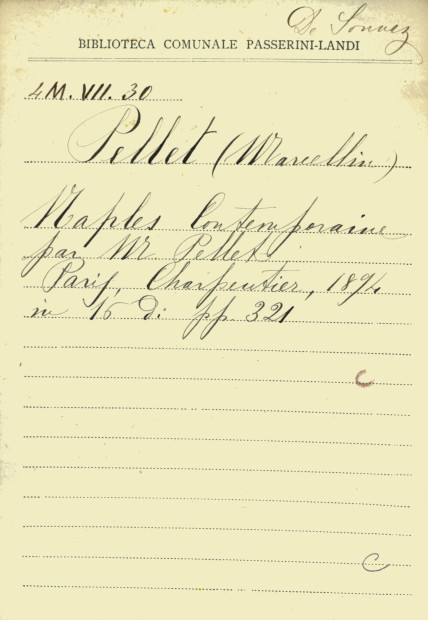 De
BIBLIOTECA COMUNALE PASSERINI-LANDI
4 M. VII. 30
Pellet (Marcellin)
Naples Contemporaine
par M Pellet
Paris, Charpentier, 1894
in 16 di pp. 321
C
C